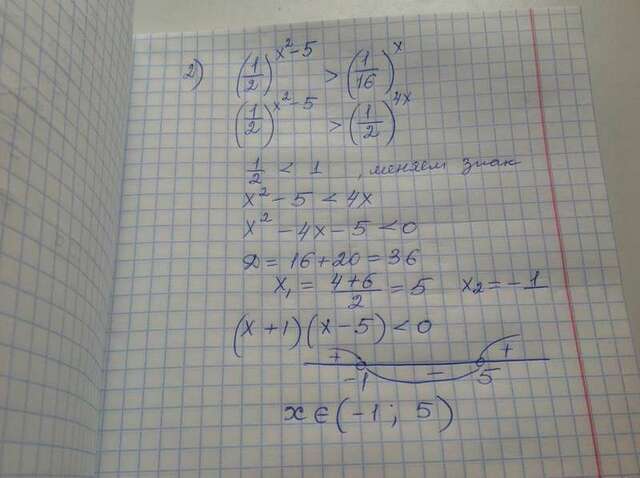 2) (1/2)^(x²-5) > (1/16)^x
(1/2)^(x²-5) > (1/2)^(4x)
1/2 < 1, меняем знак
x² - 5 < 4x
x² - 4x - 5 < 0
D = 16 + 20 = 36
x₁ = (4+6)/2 = 5 x₂ = -1
(x + 1)(x - 5) < 0
+ - +
-1 5
x ∈ (-1; 5)